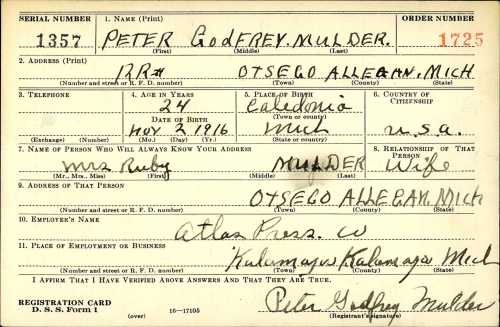 SERIAL NUMBER 1. NAME (Print) ORDER NUMBER
1357 PETER GODFREY MULDER. 1725
(First) (Middle) (Last)
2. ADDRESS (Print)
RR# OTSEGO ALLEGAN. MICH
(Number and street or R. F. D. number) (Town) (County) (State)
3. TELEPHONE 4. AGE IN YEARS 5. PLACE OF BIRTH 6. COUNTRY OF CITIZENSHIP
24 Caledonia
DATE OF BIRTH (Town or county)
Nov 2 1916 Mich U.S.a.
(Exchange) (Number) (Mo.) (Day) (Yr.) (State or country)
7. NAME OF PERSON WHO WILL ALWAYS KNOW YOUR ADDRESS 8. RELATIONSHIP OF THAT PERSON
Mrs Ruby MULDER Wife
(Mr., Mrs., Miss) (First) (Middle) (Last)
9. ADDRESS OF THAT PERSON
OTSEGO ALLEGAN. Mich
(Number and street or R. F. D. number) (Town) (County) (State)
10. EMPLOYER'S NAME
Atlas Press. Co
11. PLACE OF EMPLOYMENT OR BUSINESS
Kalamazoo Kalamazoo Mich
(Number and street or R. F. D. number) (Town) (County) (State)
I AFFIRM THAT I HAVE VERIFIED ABOVE ANSWERS AND THAT THEY ARE TRUE.
REGISTRATION CARD
D. S. S. Form 1 (over) 16—17105 Peter Godfrey Mulder
(Registrant's signature)